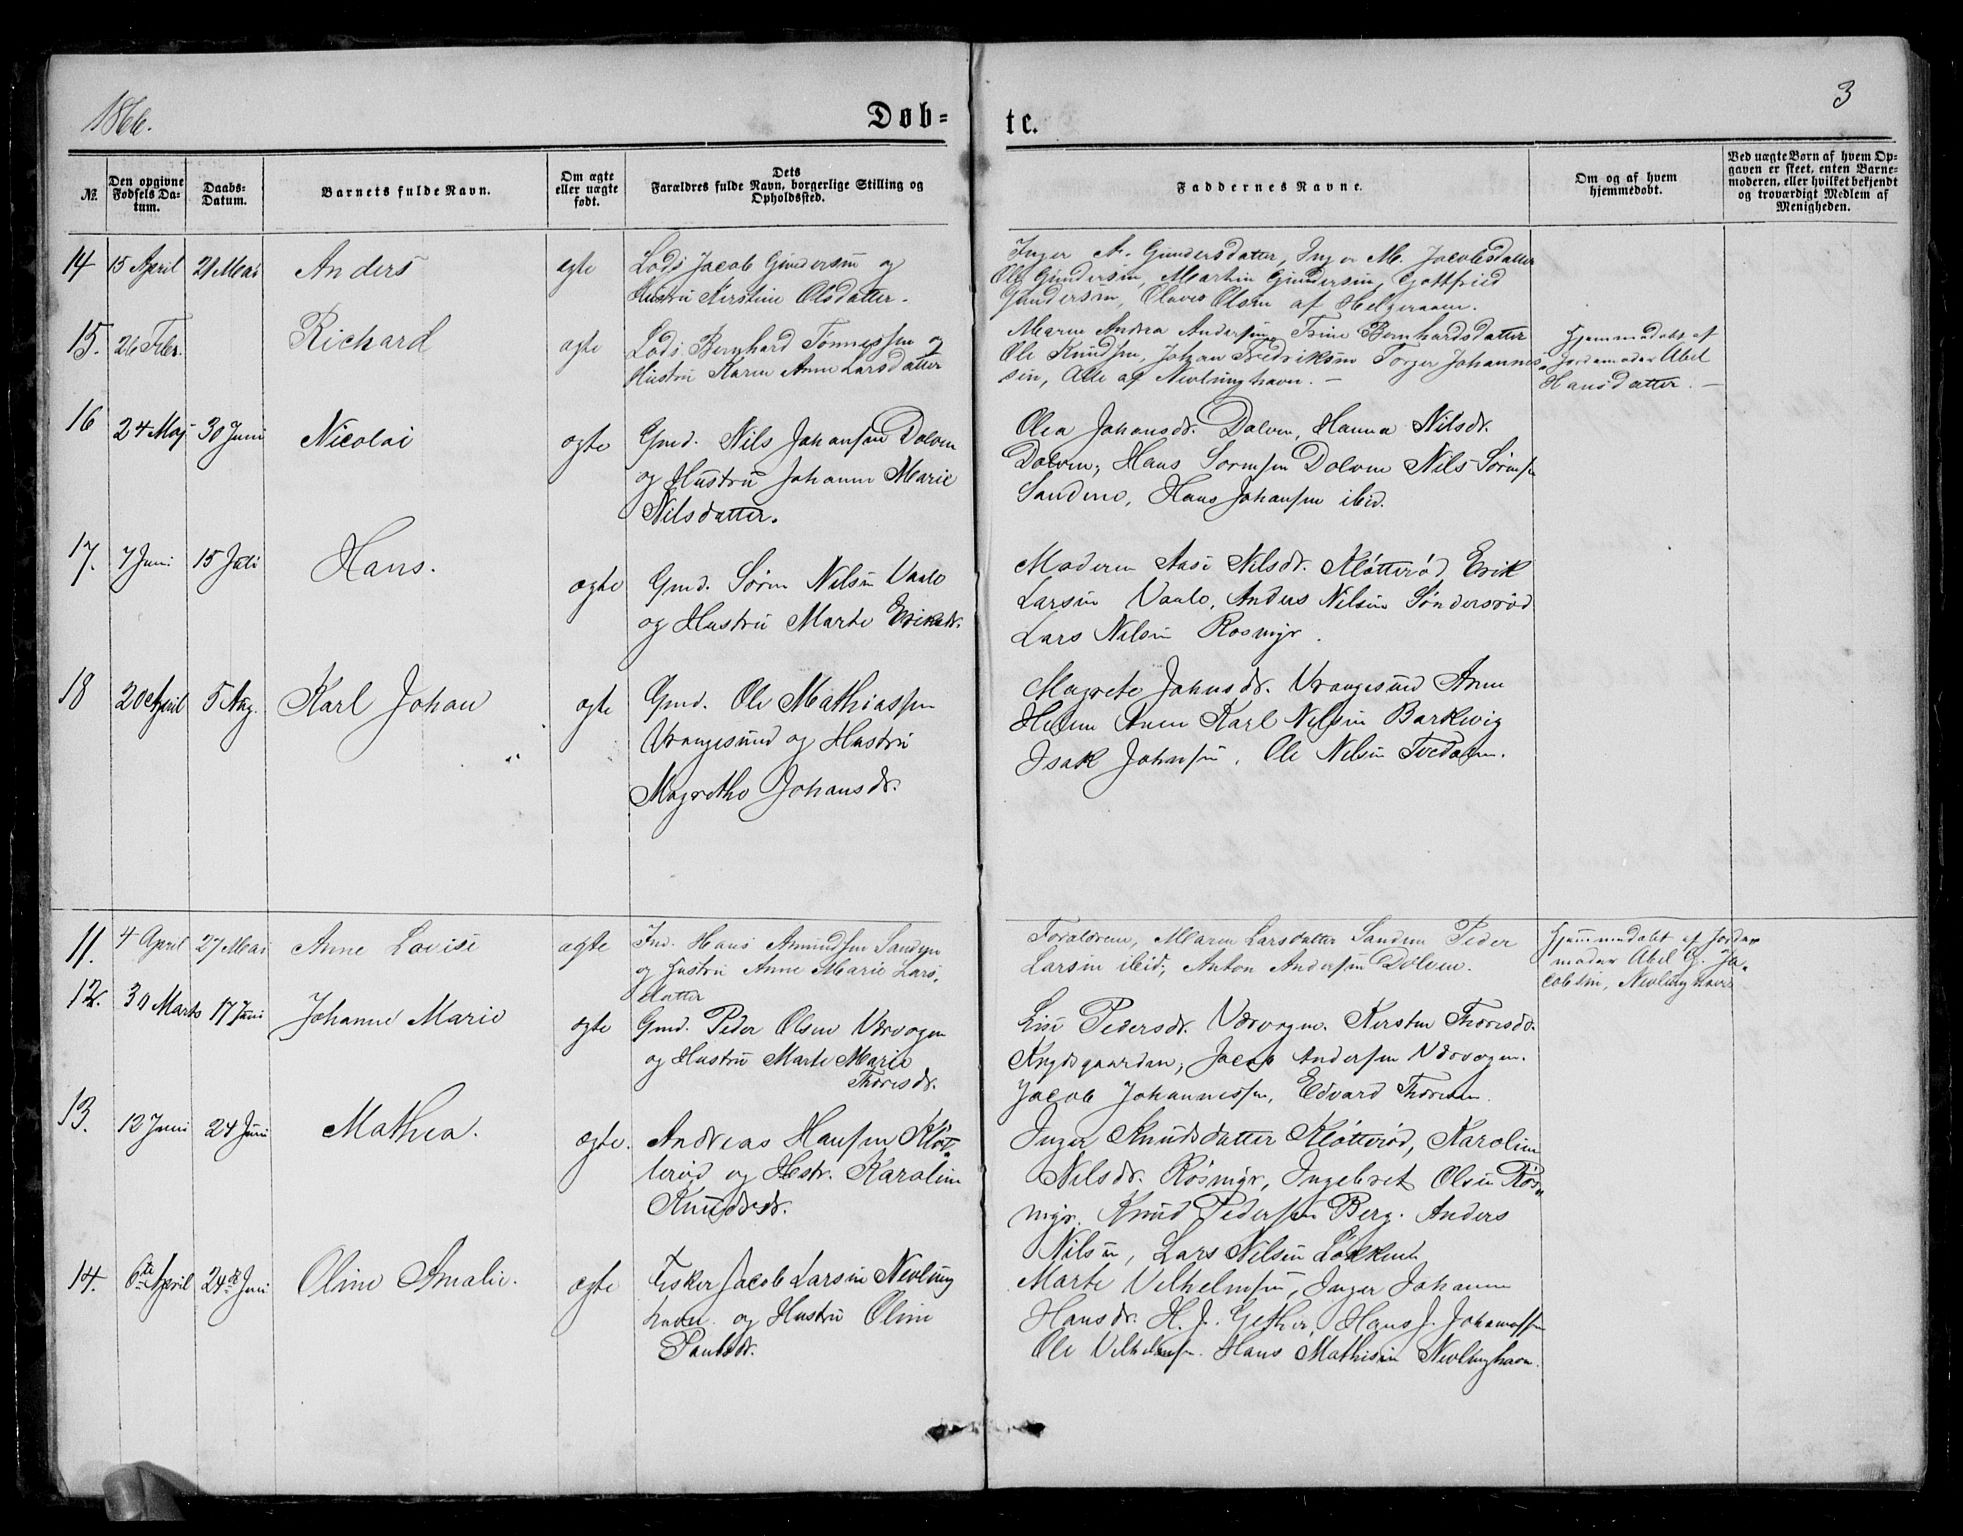 1866.
Døb-
te.
3
№.
Den opgivne Fødsels Da-tum.
Daabs-Datum.
Barnets fulde Navn.
Om ægte eller uægte født.
Dets Forældres fulde Navn, borgerlige Stilling og Opholdssted.
Faddernes Navne.
Om og af hvem hjemmedøbt.
Ved uægte Børn af hvem Op-gaven er skeet, enten Barne-moderen, eller hvilket bekjendt og troværdigt Medlem af Menigheden.
14 15 April 21 Mai Anders ægte Lods Jacob Gundersen og
Hustru Kirstine Olsdatter.
Inger A. Gundersdatter, Inger M. Jacobsdatter
Ole Gundersen, Martin Gundersen, Gottfried
Gundersen, Olaves Olsen af Helgeraaen.
15. 26 Febr. Richard ægte Lods. Bernhard Tönnessen og
Hustru Karen Anne Larsdatter
Maren Andrea Andersen Trine Bernhardsdatter
Ole Knudsen, Johan Fredriksen Torger Johannes-
sen, Alle af Nevlunghavn. —
Hjemmedøbt af
Jordemoder Abel
Hansdatter. —
16 24 Maj 30 Juni Nicolai ægte Gmd. Nils Johansen Dolven
og Hustru Johanne Marie
Nilsdatter.
Olea Johansdr. Dolven, Hanna Nilsdr.
Dolven, Hans Sørensen Dolven Nils Sørensen
Sandene, Hans Johansen ibid.
17. 7 Juni 15 Juli Hans. ægte Gmd. Sören Nilsen Vaale
og Hustru Marte Eriksdr.
Moderen Aase Nilsdr. Kløtterød Erik
Larsen Vaale, Anders Nilsen Søndersrød
Lars Nilsen Rosmyr.
18 20 April 5 Aug. Karl Johan ægte Gmd. Ole Mathiassen
Vrangesund og Hustru
Magrethe Johansdr.
Magrete Johnsdr. Vrangesund Anne
Helene Karl Nilsen Barkevig
Isak Johnsen, Ole Nilsen Tvedalen.
11. 4 April 27 Mai Anne Lovise ægte Ind. Hans Amundsen Sanden
og Hustru Anne Marie Lars-
datter
Forældrene, Maren Larsdatter Sanden Peder
Larsen ibid, Anton Andersen Dolven.
Hjemmedøbt af Jorde-
moder Abel G. Ja-
cobsen, Nevlunghavn
12. 30 Marts 17 Juni Johanne Marie ægte Gmd. Peder Olsen Vevvogen
og Hustru Marte Marie
Thoresdr.
Lise Pedersdr. Vevvogen. Kirsten Thoresdr.
Krydsgaarden, Jacob Andersen Vevvogen.
Jacob Johannessen, Edvard Thoresen.
13. 12 Juni 24 Juni Mathea. ægte. Andreas Hansen Kløt-
terød og Hstr. Karoline
Knudsdr.
Inger Knudsdatter Kløtterød, Karoline
Nilsdr. Røsmyr, Ingebret Olsen Røs-
myr. Knud Pedersen Berg. Anders
Nilsen, Lars Nilsen Løkkene
14. 6te April 24de Juni Oline Amalie. ægte Fisker Jacob Larsen Nevlung
havn og Hustru Oline
Paulsdr.
Marte Vilhelmsen, Inger Johanne
Hansdr. H. J. Gether, Hans J. Johannessen
Ole Vilhelmsen. Hans Mathisen Nevlunghavn.